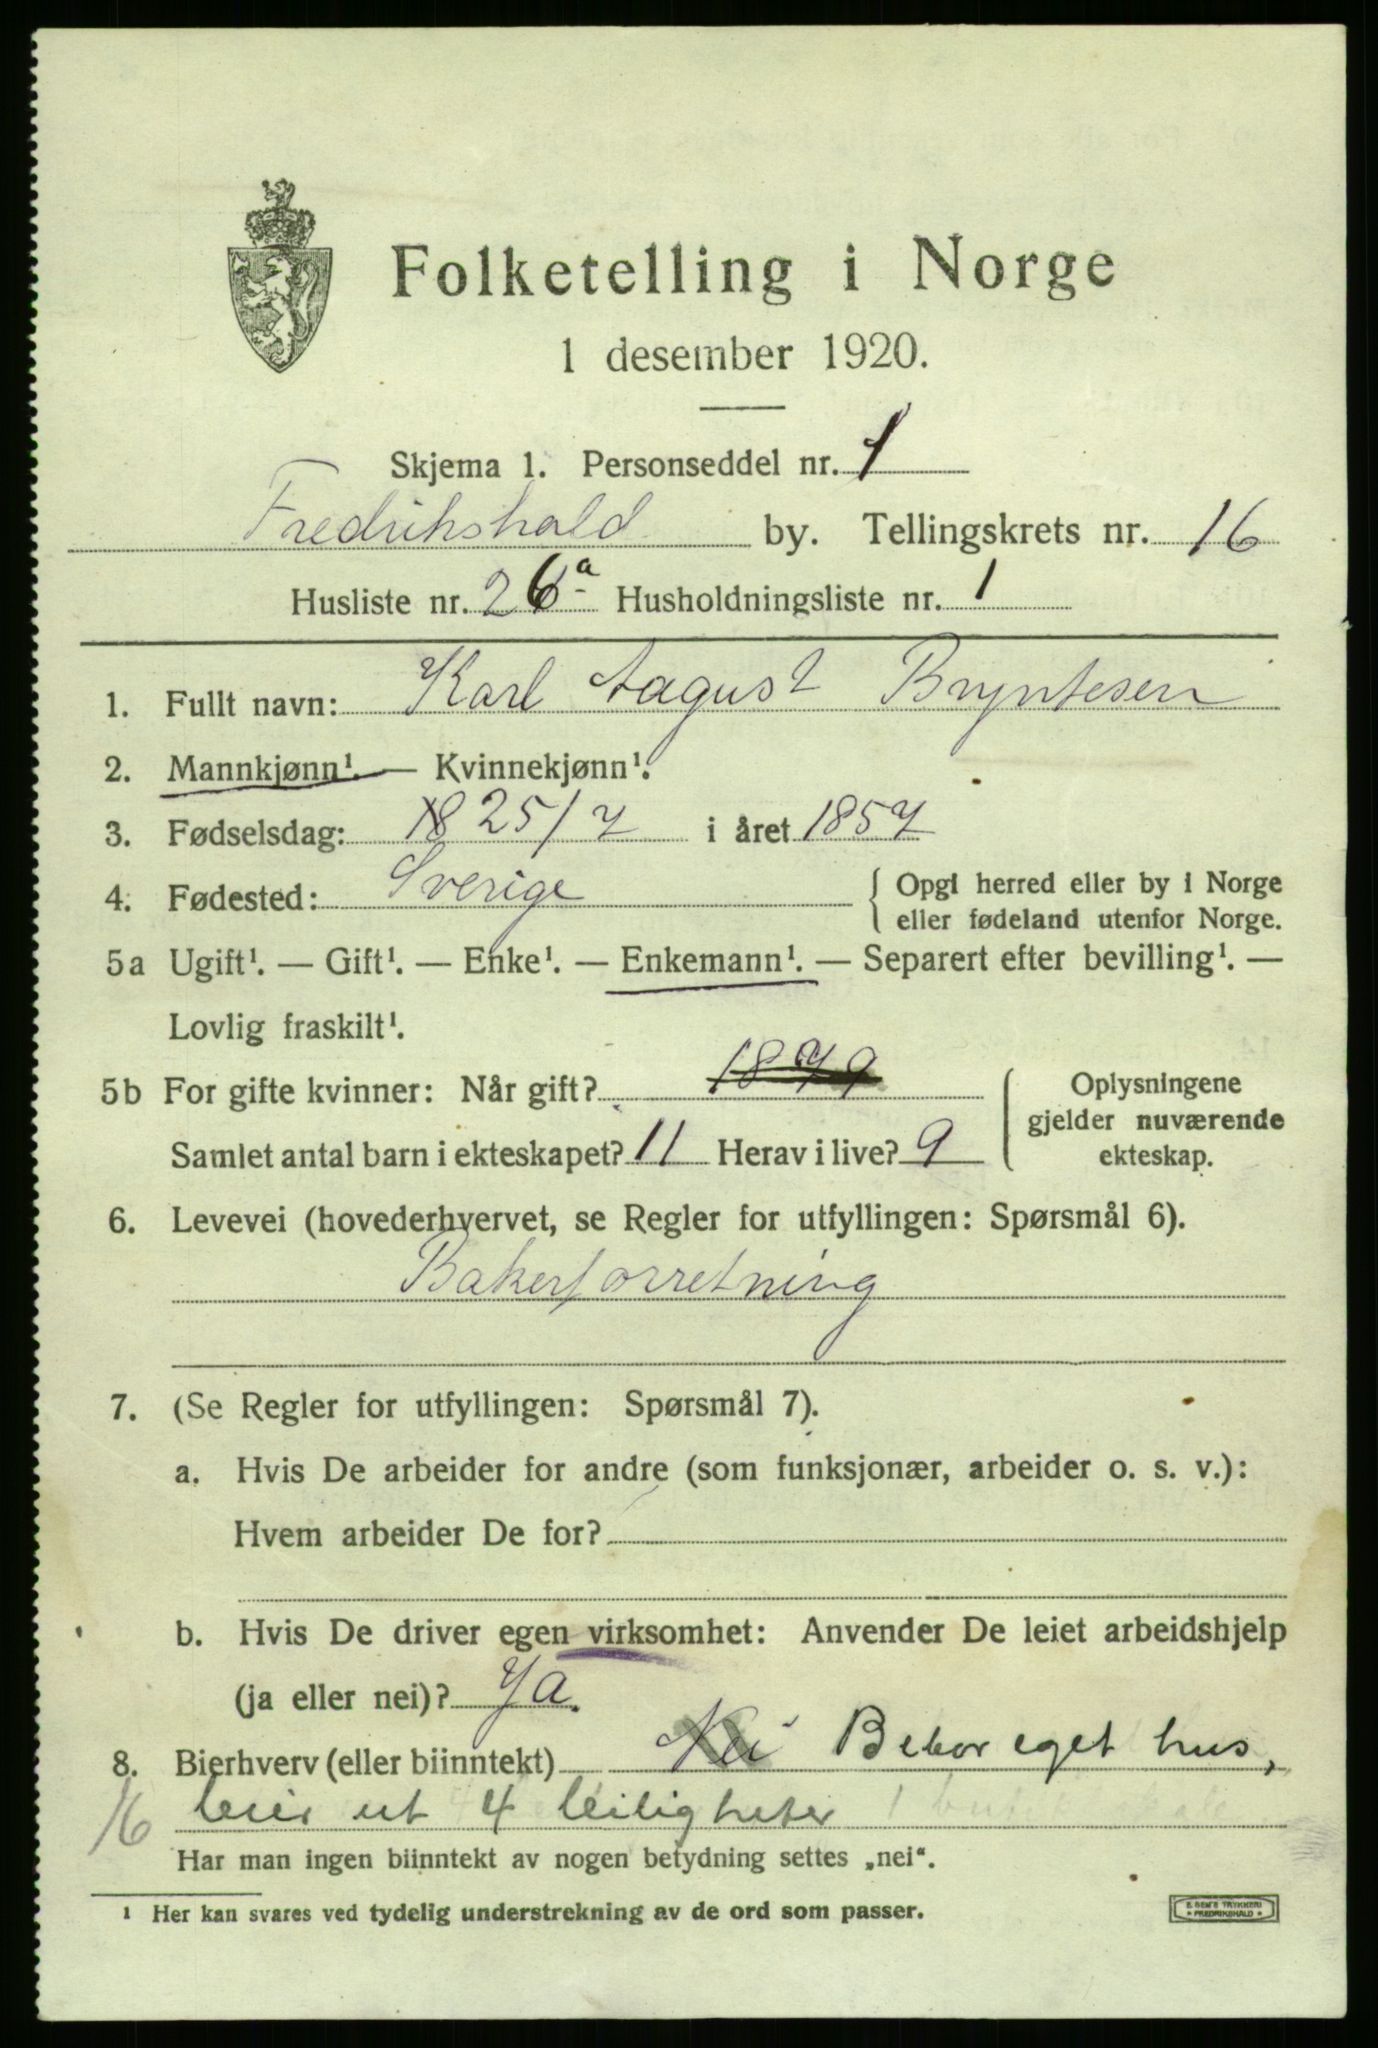 Folketelling i Norge
1 desember 1920.
Skjema 1. Personseddel nr. 1
Fredrikshald by. Tellingskrets nr. 16
Husliste nr. 26a Husholdningsliste nr. 1
1. Fullt navn: Karl Aagust Bryntesen
2. Mannkjønn¹. — Kvinnekjønn¹.
3. Fødselsdag: 18 25/7 i året 1857
4. Fødested: Sverige { Opgi herred eller by i Norge
eller fødeland utenfor Norge.
5a Ugift¹. — Gift¹. — Enke¹. — Enkemann¹. — Separert efter bevilling¹. —
Lovlig fraskilt¹.
5b For gifte kvinner: Når gift? 1879
Samlet antal barn i ekteskapet? 11 Herav i live? 9
Oplysningene
gjelder nuværende
ekteskap.
6. Levevei (hovederhvervet, se Regler for utfyllingen: Spørsmål 6).
Bakerforretning
7. (Se Regler for utfyllingen: Spørsmål 7).
a. Hvis De arbeider for andre (som funksjonær, arbeider o. s. v.):
Hvem arbeider De for?
b. Hvis De driver egen virksomhet: Anvender De leiet arbeidshjelp
(ja eller nei)? Ja.
8. Bierhverv (eller biinntekt) Nei Bebor eget hus,
16 leier ut 4 leiligheter 1
Har man ingen biinntekt av nogen betydning settes „nei“.
¹ Her kan svares ved tydelig understrekning av de ord som passer.
E. SEM'S TRYKKERI
* FREDRIKSHALD *